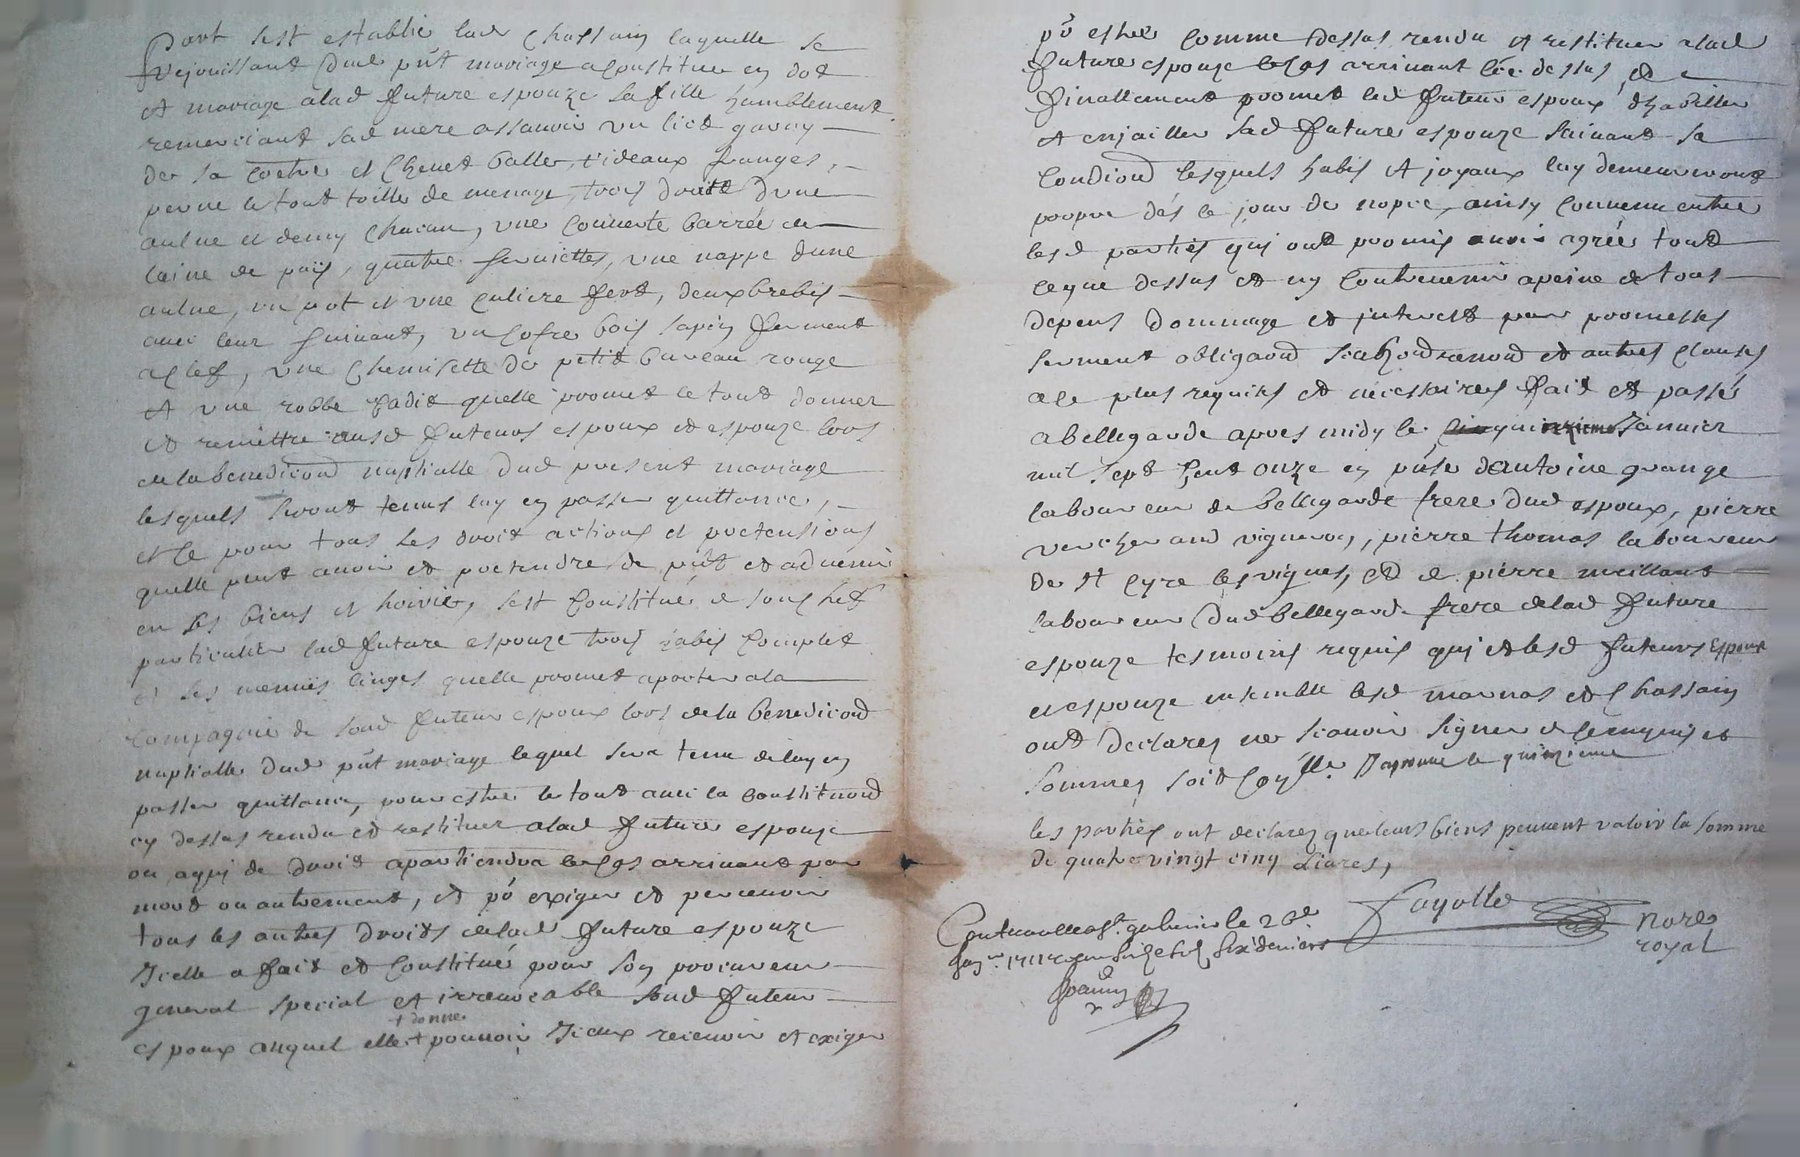 part s'est establie lad Chassain laquelle se
rejouissant dud pñt mariage a constitue en dot
et mariage a lad future espouze sa fille humblement
remerciant sad mere assavoir un lict garny
de sa coetre et chevet balle, rideaux franges,
perne le tout toille de menage, trois draps d'une
aulne et demy chacun, une couverte barrée de
laine de païs, quatre serviettes, une nappe d'une
aulne, un pot et une culiere fert, deux brebis
avec leur suivant, un cofre bois sapin fermant
a clef, une chemisette de petit bureau rouge
et une robbe cadit quelle promet le tout donner
et remettre ausd futeurs espoux et espouze lors
de la benediond nuptialle dud present mariage
lesquels seront tenus luy en passer quittance,
et ce pour tous les droit actions et pretensions
quelle peut avoir et pretendre de pñt et advenir
en ses biens et hoirie, sest constitué de son chef
particulier lad future espouze trois habis complet
et ses menus linges quelle promet aporter a la
compagnie de soud futeur espoux lors de la benediciond
nuptialle dud pñt mariage lequel sera tenu de luy en
passer quittance, pour estre le tout avec la constitutiond
cy dessus rendu et restituer a lad future espouze
ou a qui de droit apartiendra le cas arrivant par
mort ou autrement, et pr exiger et percevoir
tous les autres droits de lad future espouze
Icelle a fait et constitué pour son procureur
general special et irrevocable soud futeur
+ donne
espoux auquel elle + pouvoir Iceux recevoir et exiger
pr estre comme dessus rendu et restituer a lad
future espouze le cas arrivant bée dessus, et
finallement promet led futeur espoux d'habiller
et enjailler sad future espouze suivant sa
condiond lesquels habis et joyaux luy demeureront
propre dés le jour de nopce, ainsy convenu entre
lesd parties qui ont promis avoir agrée tout
ce que dessus et ny contrevenir a peine de tous
depens dommage et interest par promesses
serment obligaond et autres clauses
a ce plus requises et necessaires fait et passé
a bellegarde apres midy le quinzieme Janvier
mil sept cent onze en pñse d'antoine grange
laboureur de bellegarde frere dud espoux, pierre
vercherand vigneron, pierre thomas laboureur
de st cyre les vignes, et de pierre meillant
laboureur dud bellegarde frere de lad future
espouze tesmoins requis qui et lesd futeurs Espoux
et espouze ensemble lesd marnas et Chassain
ont declarez ne scavoir signer de ce enquis et
sommez soit Coñlle Daprouve le quinzieme
les parties ont declarez que leurs biens peuvent valoir la somme
de quatre vingt cinq Livres,
Fayolle nore
royal
Controolle a st galmier le 26e
Jan 1711 six deniers